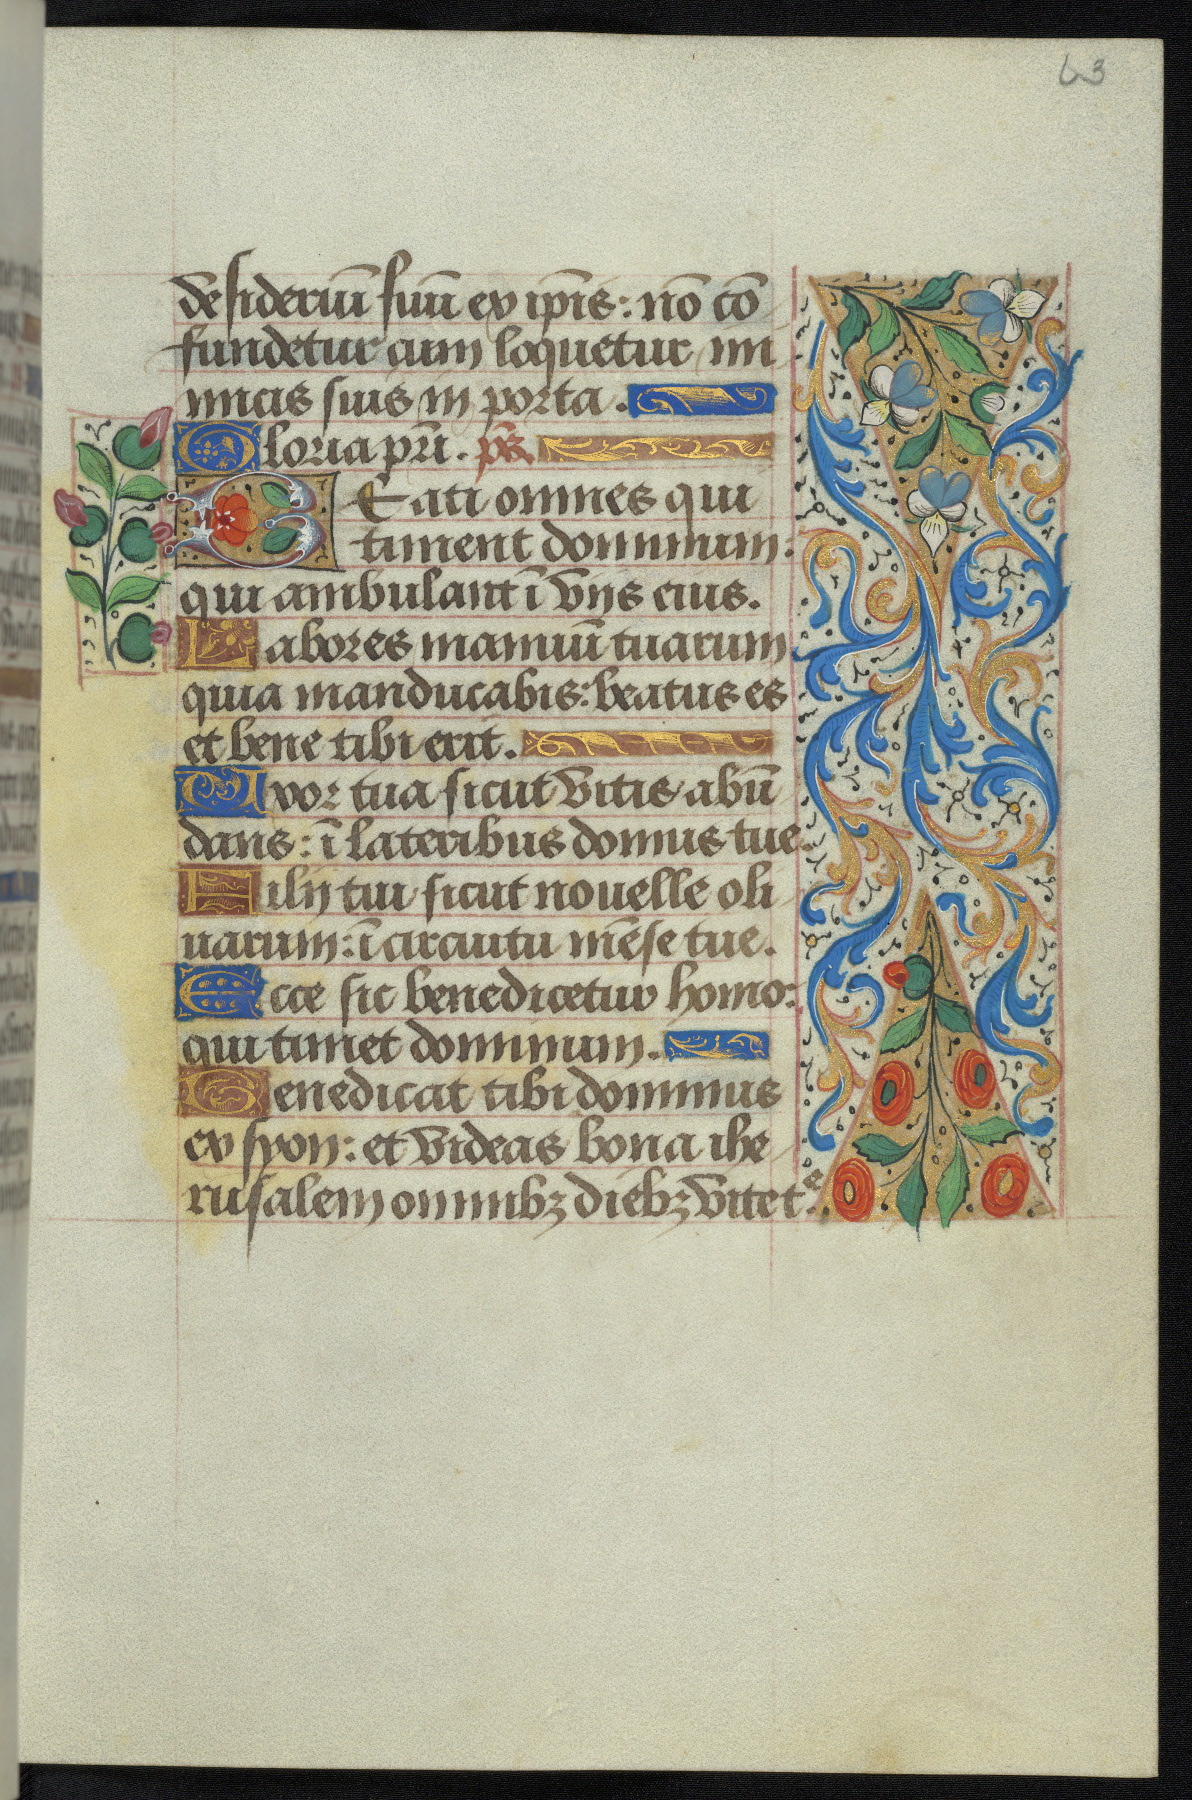 63
desideriū suū ex ip̄is: nō cō
fundetur cum loquetur ini
micis suis in porta.
Gloria pr̄i. p̄s.
Beati omnes qui
timent dominum:
qui ambulant ī vijs eius.
Labores manuū tuarum
quia manducabis: beatus es
et bene tibi erit.
Uxor tua sicut vitis abū
dans: ī lateribus domus tue.
Filij tui sicut nouelle oli
uarum: ī circuitu mēse tue.
Ecce sic benedicetur homo:
qui timet dominum.
Benedicat tibi dominus
ex syon: et videas bona ihe
rusalem omnibꝫ diebꝫ vite t.